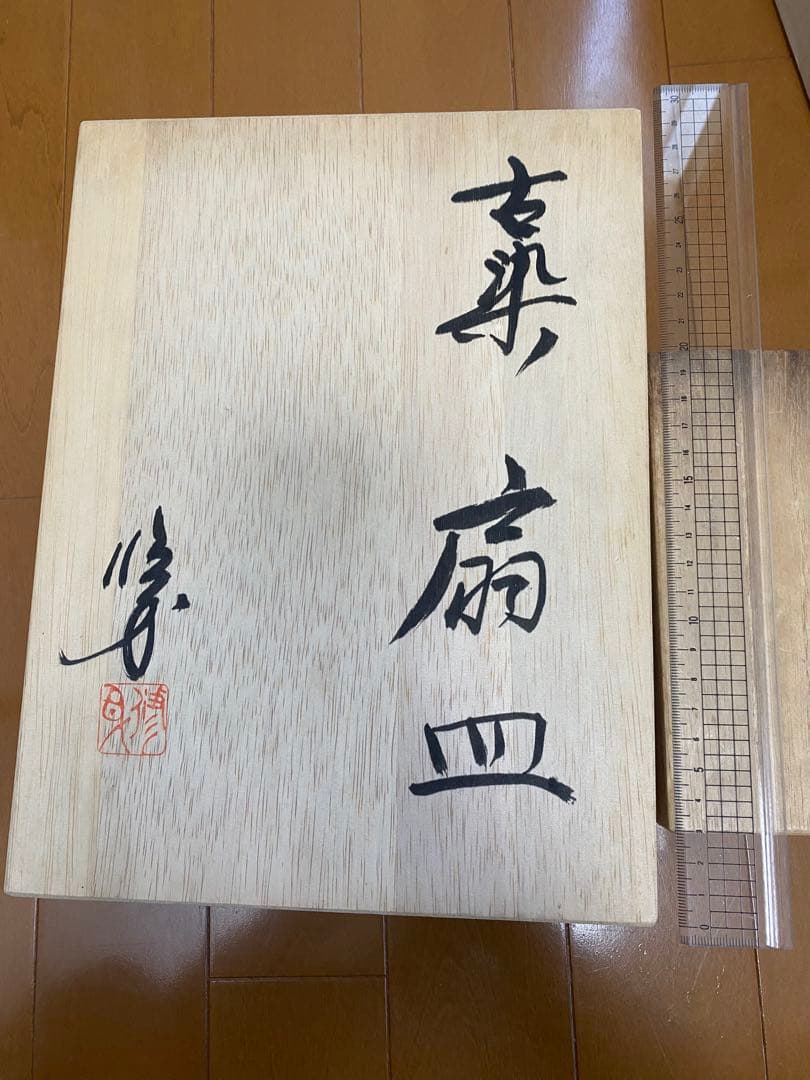 古染 扇皿
30
29
28
27
26
25
24
23
22
21
20
19
18
17
16
15
14
13
12
11
10
9
8
7
6
5
4
3
2
1
0